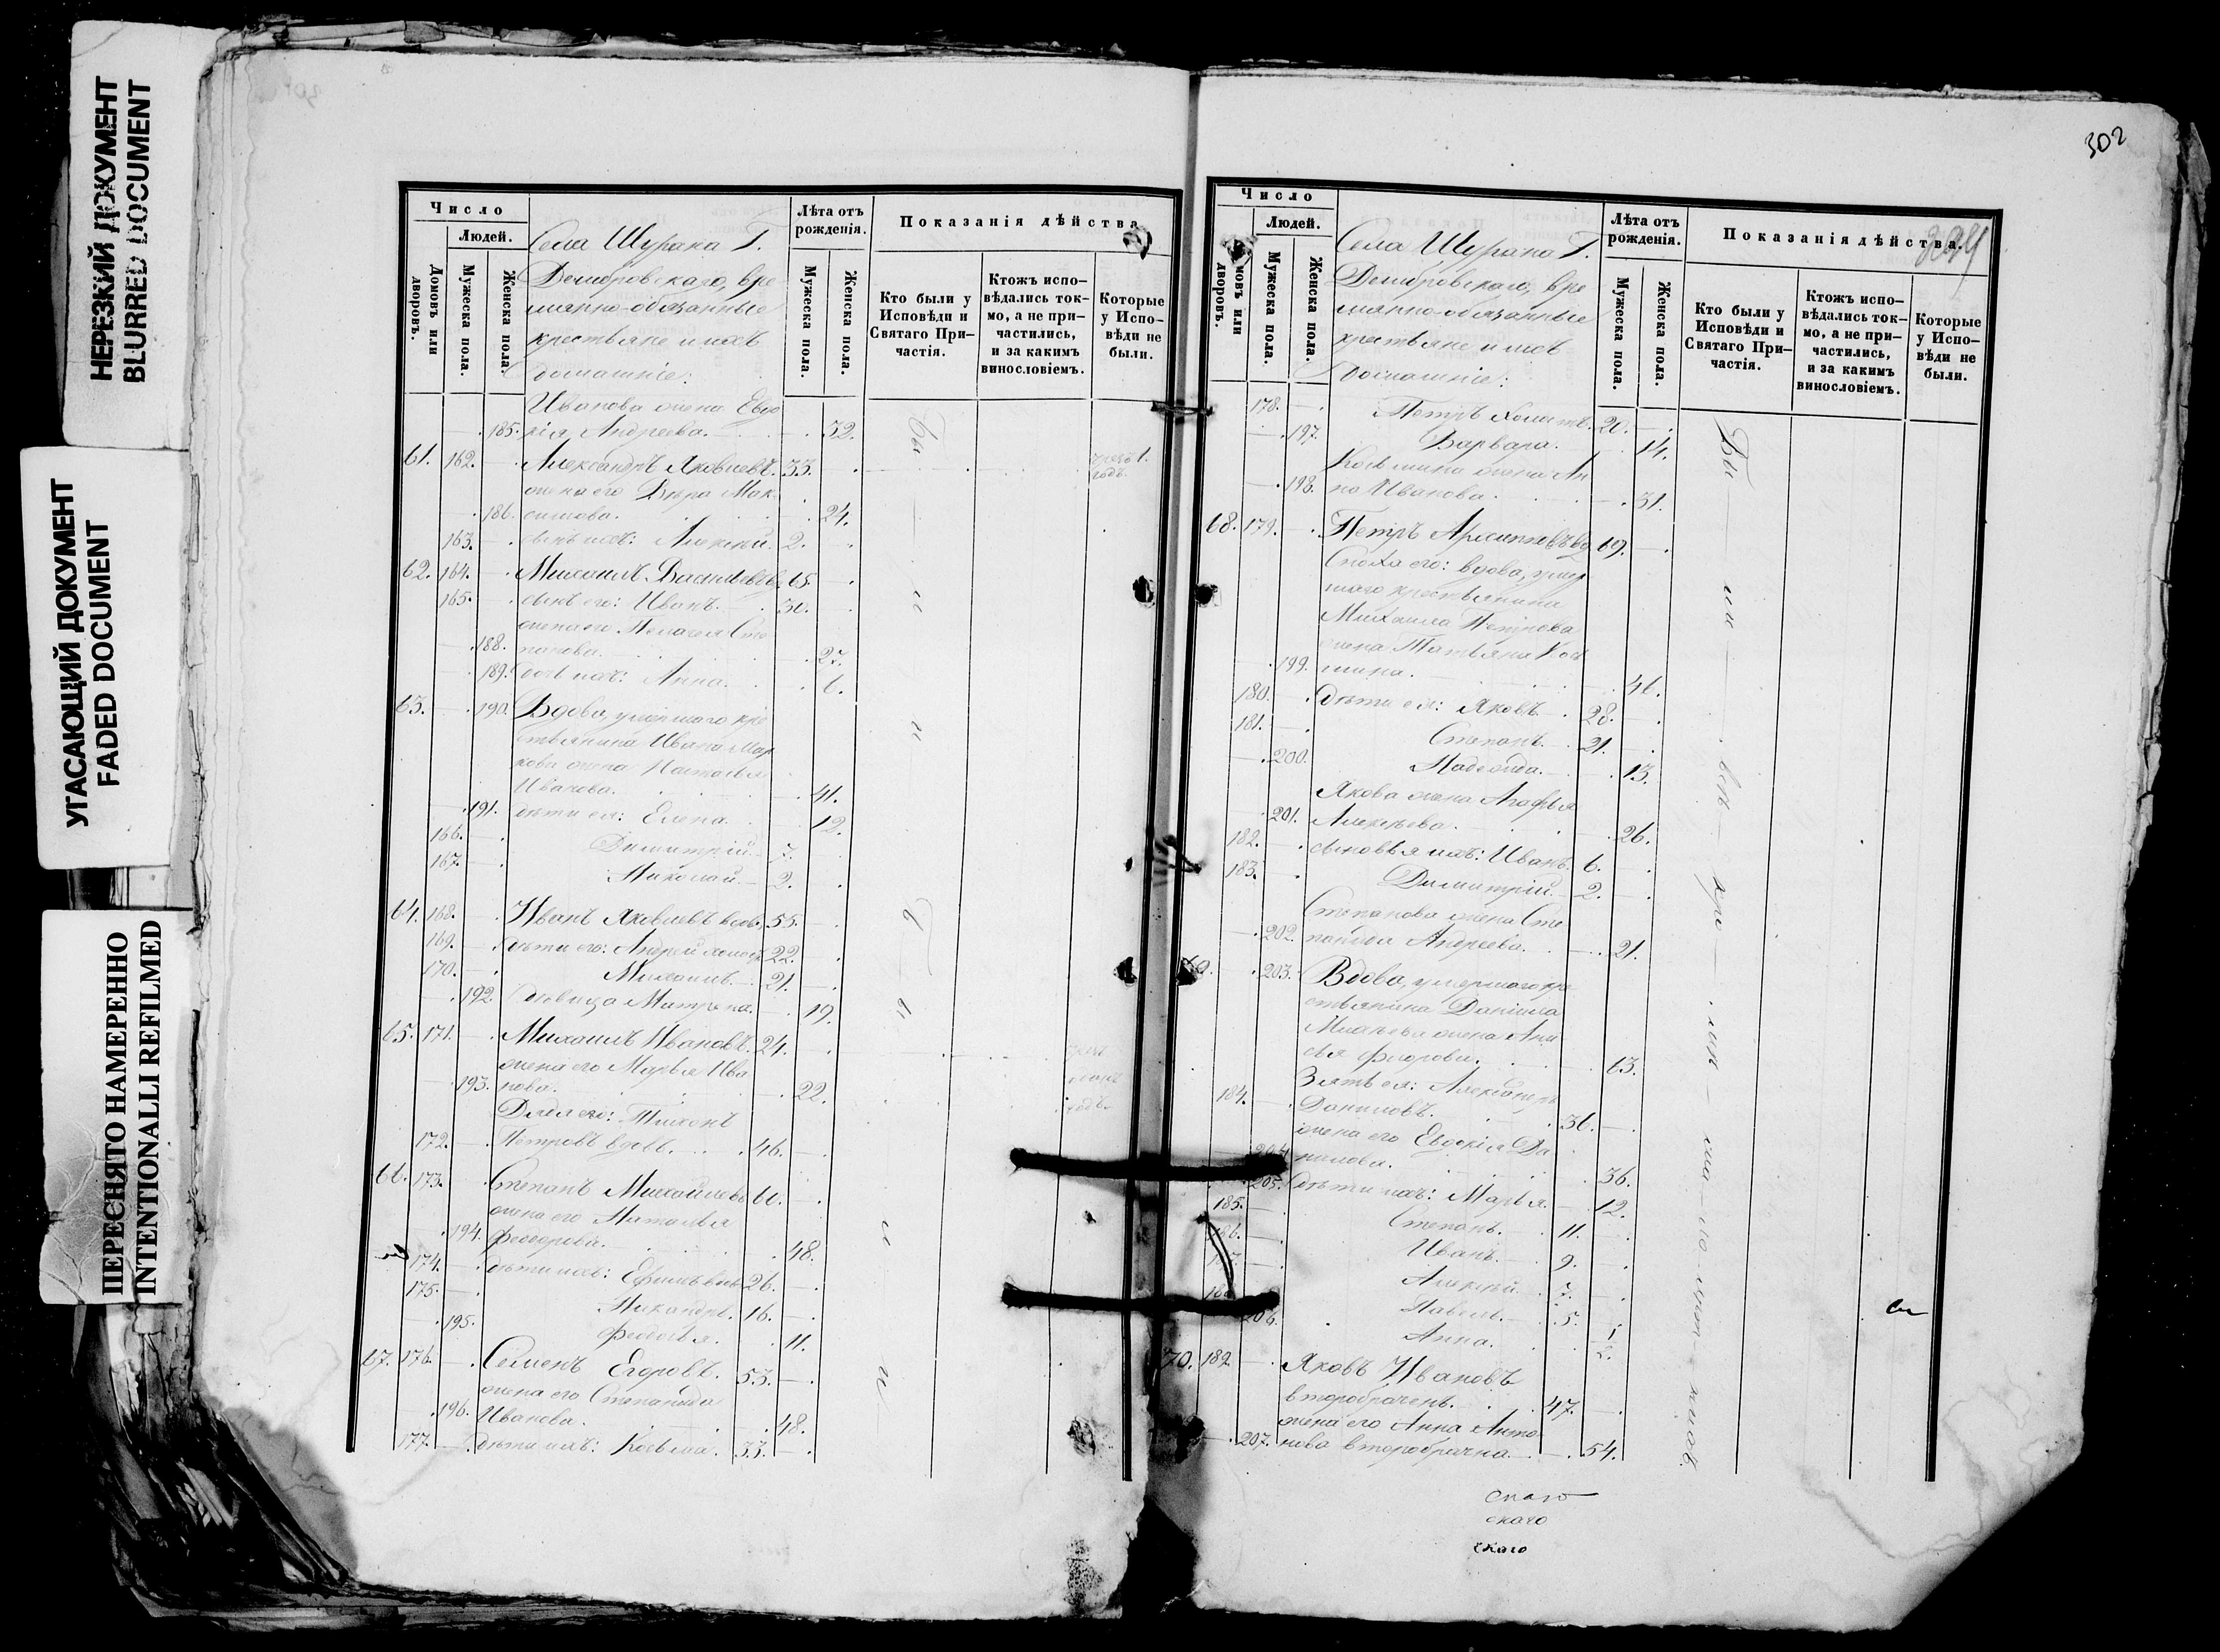 НЕРЕЗКИЙ ДОКУМЕНТ
BLURRED DOCUMENT
УГАСАЮЩИЙ ДОКУМЕНТ
FADED DOCUMENT
ПЕРЕСНЯТО НАМЕРЕННО
INTENTIONALLI REFILMED
Число
Людей.
Домовъ или дворовъ.
Мужеска пола.
Женска пола.
Села Шурана Г.
временно-обязанные
крестьяне и ихъ
домашніе:
Лѣта отъ рожденія.
Мужеска пола.
Женска пола.
Показанія дѣйства
Кто были у Исповѣди и Святаго При-частія.
Ктожъ испо-вѣдались ток-мо, а не при-частились, и за какимъ винословіемъ.
Которые у Испо-вѣди не были.
Иванова жена Евдо
185. кія Андреева. 32.
61. 162. Александръ Яковлевъ. 33.
жена его Вѣра Мак
186. симова. 24.
163. сынъ ихъ: Алексѣй. 2.
62. 164. Михаилъ Васильевъ 65.
165. сынъ его: Иванъ. 30.
жена его Пелагея Сте
188. панова. 27.
189. дочь ихъ: Анна. 6.
63. 190. Вдова, умершаго кре
стьянина Ивана Мар
кова жена Настасья
Иванова. 41.
191. дѣти ея: Елена. 12.
166. Димитрій. 7.
167. Николай. 2.
64. 168. Иванъ Яковлевъ вдовъ 55.
169. дѣти его: Андрей холостъ 22.
170. Михаилъ. 21.
192. девица Матрена. 19.
65. 171. Михаилъ Ивановъ. 24.
жена его Марья Ива
193. нова. 22.
Дядя его: Тихонъ
172. Петровъ вдовъ. 46.
66. 173. Степанъ Михайловъ 60.
жена его Наталья
194. Феодорова. 48.
174. дѣти ихъ: Ефимъ 26.
175. Никандръ. 16.
195. Феодосья. 11.
67. 176. Семенъ Егоровъ. 53.
жена его Степанида
196. Иванова. 48.
177. дѣти ихъ: Козьма. 33.
302
Число
Людей.
Мужеска пола.
Женска пола.
Села Шурана Г.
временно-обязанные
крестьяне и ихъ
домашніе:
Лѣта отъ рожденія.
Мужеска пола.
Женска пола.
Показанія дѣйства.
Кто были у Исповѣди и Святаго При-частія.
Ктожъ испо-вѣдались ток-мо, а не при-частились, и за какимъ винословіемъ.
Которые у Испо-вѣди не были.
178. Петръ холостъ. 20.
197. Варвара. 14.
Козьмина жена Ан
198. на Иванова. 31.
68. 179. Петръ Архиповъ вд 69.
Сноха его: вдова, умер
шаго крестьянина
Михаила Петрова
жена Татьяна Козь
199. мина. 46.
180. дѣти ея: Яковъ. 28.
181. Степанъ. 21.
200. Надежда. 13.
Якова жена Агафья
201. Алексѣева. 26.
182. сыновья ихъ: Иванъ. 6.
183. Димитрій. 2.
Степанова жена Сте
202. панида Андреева. 21.
203. Вдова, умершаго кре
стьянина Даніила
жена Ани
сья Федорова. 63.
Зять ея: Александръ
184. Даниловъ. 36.
жена его Евдокія Да
204. нилова. 36.
205. дѣти ихъ: Марья. 12.
185. Степанъ. 11.
186. Иванъ. 9.
Алексѣй. 7.
Павелъ. 5.
206. Анна.
70. 189. Яковъ Ивановъ
второбраченъ. 47.
жена его Анна Анто
207. нова второбрачна. 54.
скаго
скаго
скаго